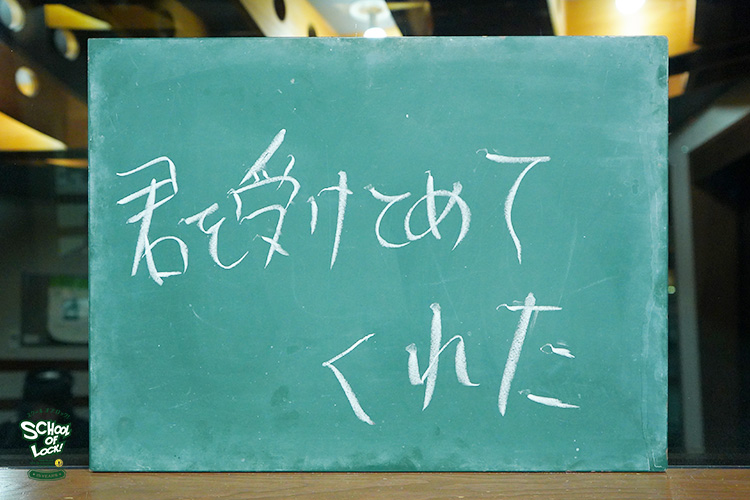 君を受けとめて
くれた
SCHOOL
OF
LOCK!